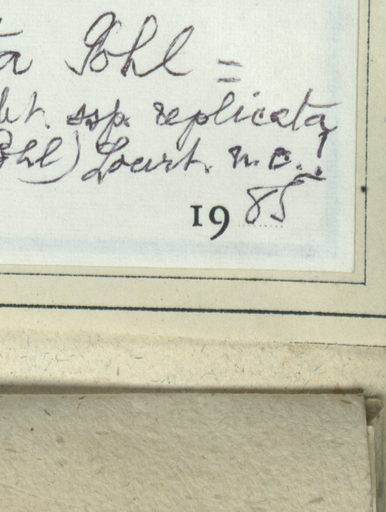 ta Pohl =
ht. ssp. replicata
Pohl) Lourt. n.c.!
1985